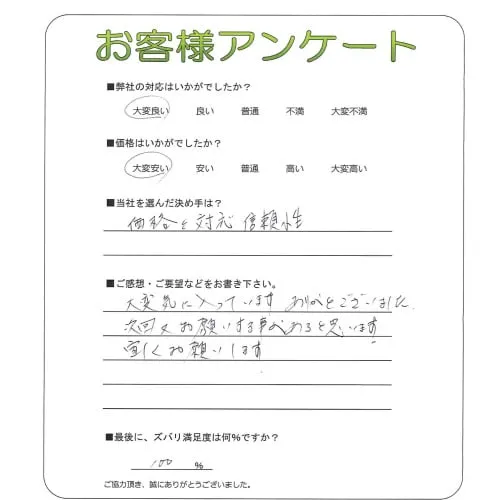 お客様アンケート
■弊社の対応はいかがでしたか？
大変良い 良い 普通 不満 大変不満
■価格はいかがでしたか？
大変安い 安い 普通 高い 大変高い
■当社を選んだ決め手は？
価格と対応 信頼性
■ご感想・ご要望などをお書き下さい。
大変気に入っています ありがとうございました
次回又お願いする事があると思います
宜しくお願いします
■最後に、ズバリ満足度は何％ですか？
100 ％
ご協力頂き、誠にありがとうございました。